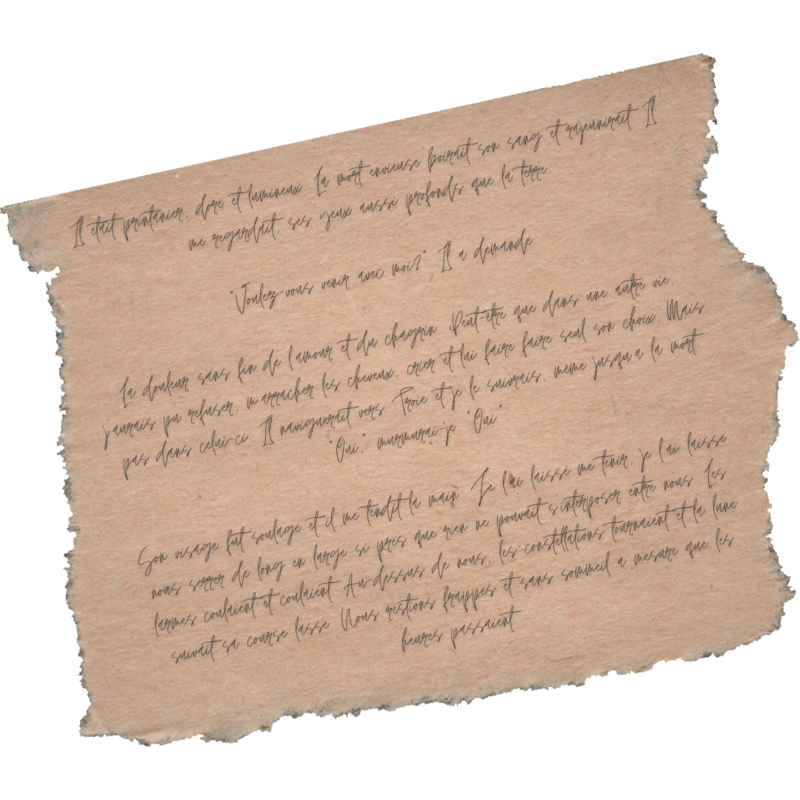 Il etait printanier, dore et lumineux La mort envieuse boirait son sang et rajeunirait Il
me regardait, ses yeux aussi profonds que la terre
"Voulez-vous venir avec moi?" Il a demande
La douleur sans fin de l'amour et du chagrin Peut-etre que dans une autre vie,
j'aurais pu refuser, m'arracher les cheveux, crier et lui faire faire seul son choix Mais
pas dans celui-ci Il naviguerait vers Troie et je le suivrais, meme jusqu'a la mort
"Oui," murmurai-je "Oui"
Son visage fut soulage et il me tendit la main Je l'ai laisse me tenir, je l'ai laisse
nous serrer de long en large si pres que rien ne pouvait s'interposer entre nous Les
larmes coulaient et coulaient Au-dessus de nous, les constellations tournaient et la lune
suivait sa course lasse Nous restions frappes et sans sommeil a mesure que les
heures passaient